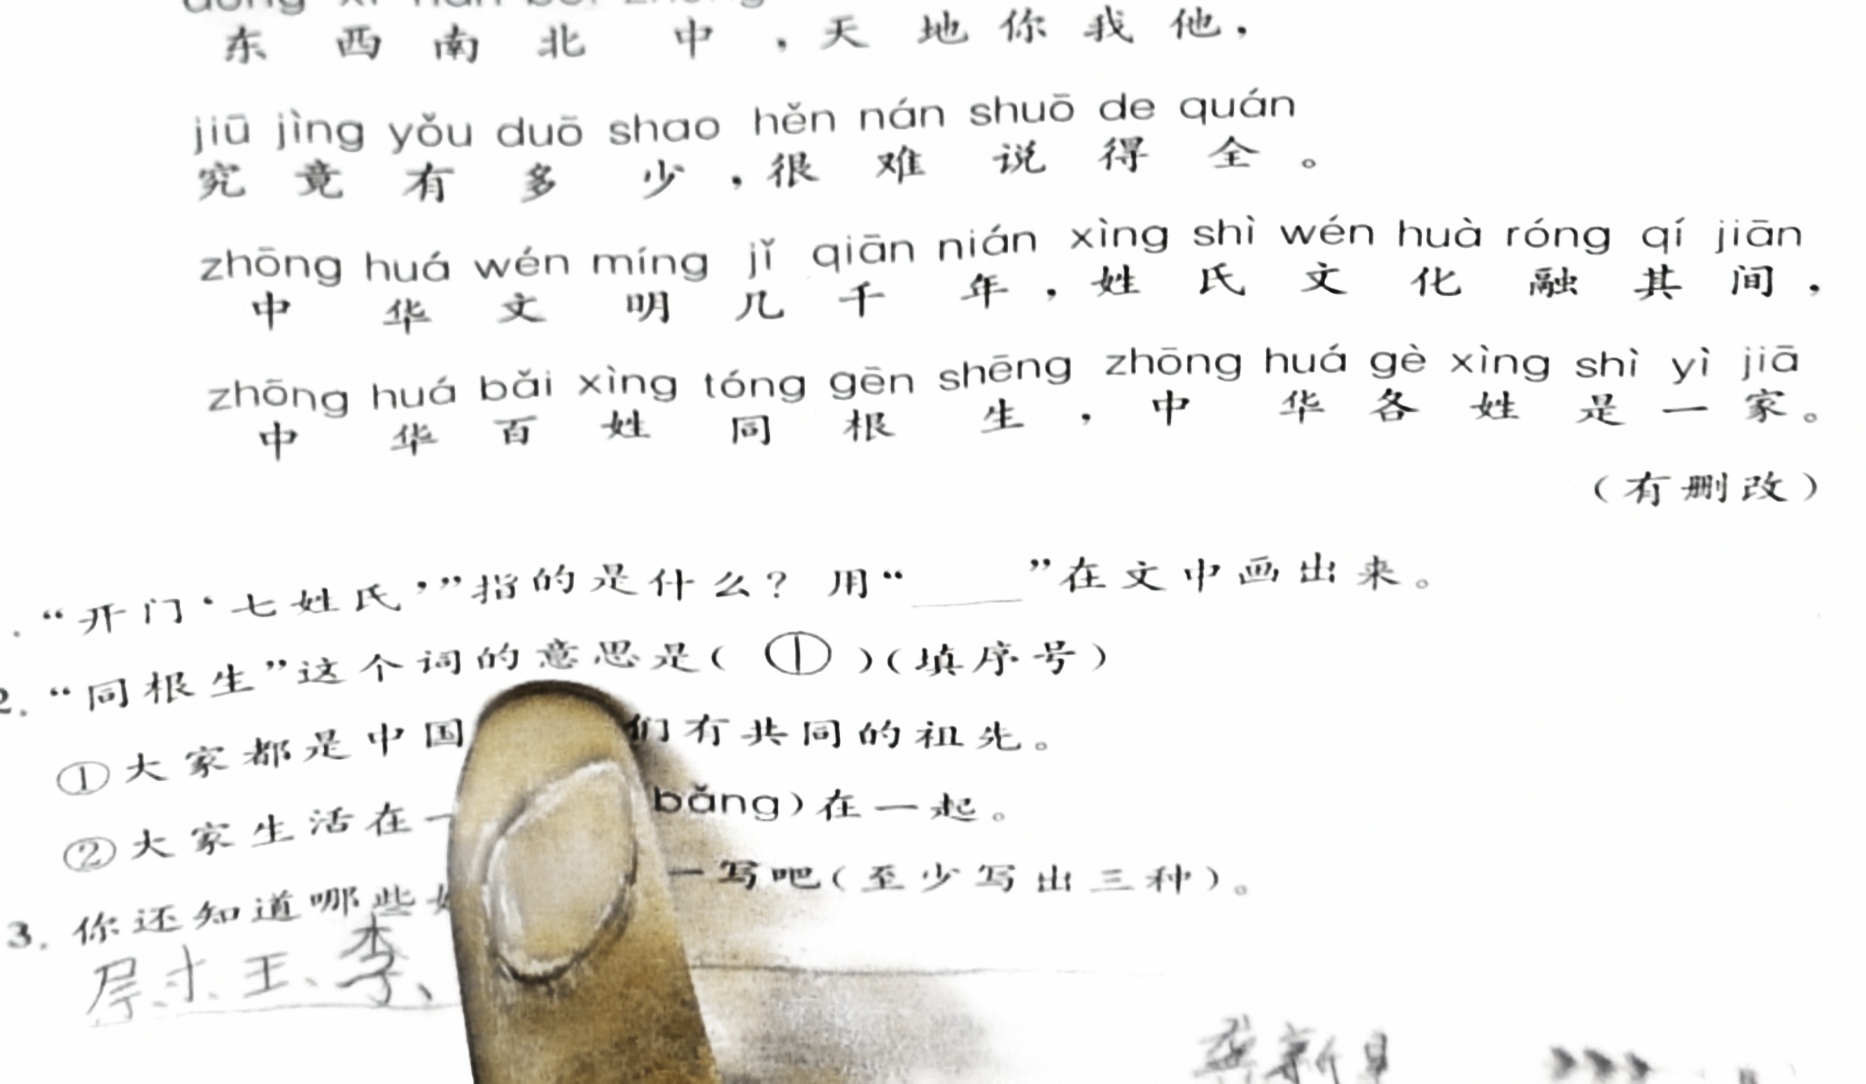 东西南北中，天地你我他，
jiū jìng yǒu duō shao hěn nán shuō de quán
究竟有多少，很难说得全。
zhōng huá wén míng jǐ qiān nián xìng shì wén huà róng qí jiān
中华文明几千年，姓氏文化融其间，
zhōng huá bǎi xìng tóng gēn shēng zhōng huá gè xìng shì yì jiā
中华百姓同根生，中华各姓是一家。
（有删改）
“开门‘七姓氏’”指的是什么？用“____”在文中画出来。
2.“同根生”这个词的意思是（①）（填序号）
①大家都是中国 们有共同的祖先。
②大家生活在一 bǎng）在一起。
3.你还知道哪些 一写吧（至少写出三种）。
王、李、